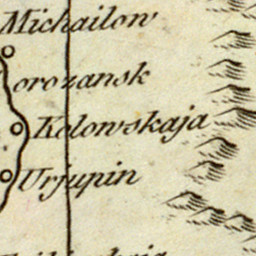 Michailow
orozansk
Kolowskaja
Urjupin